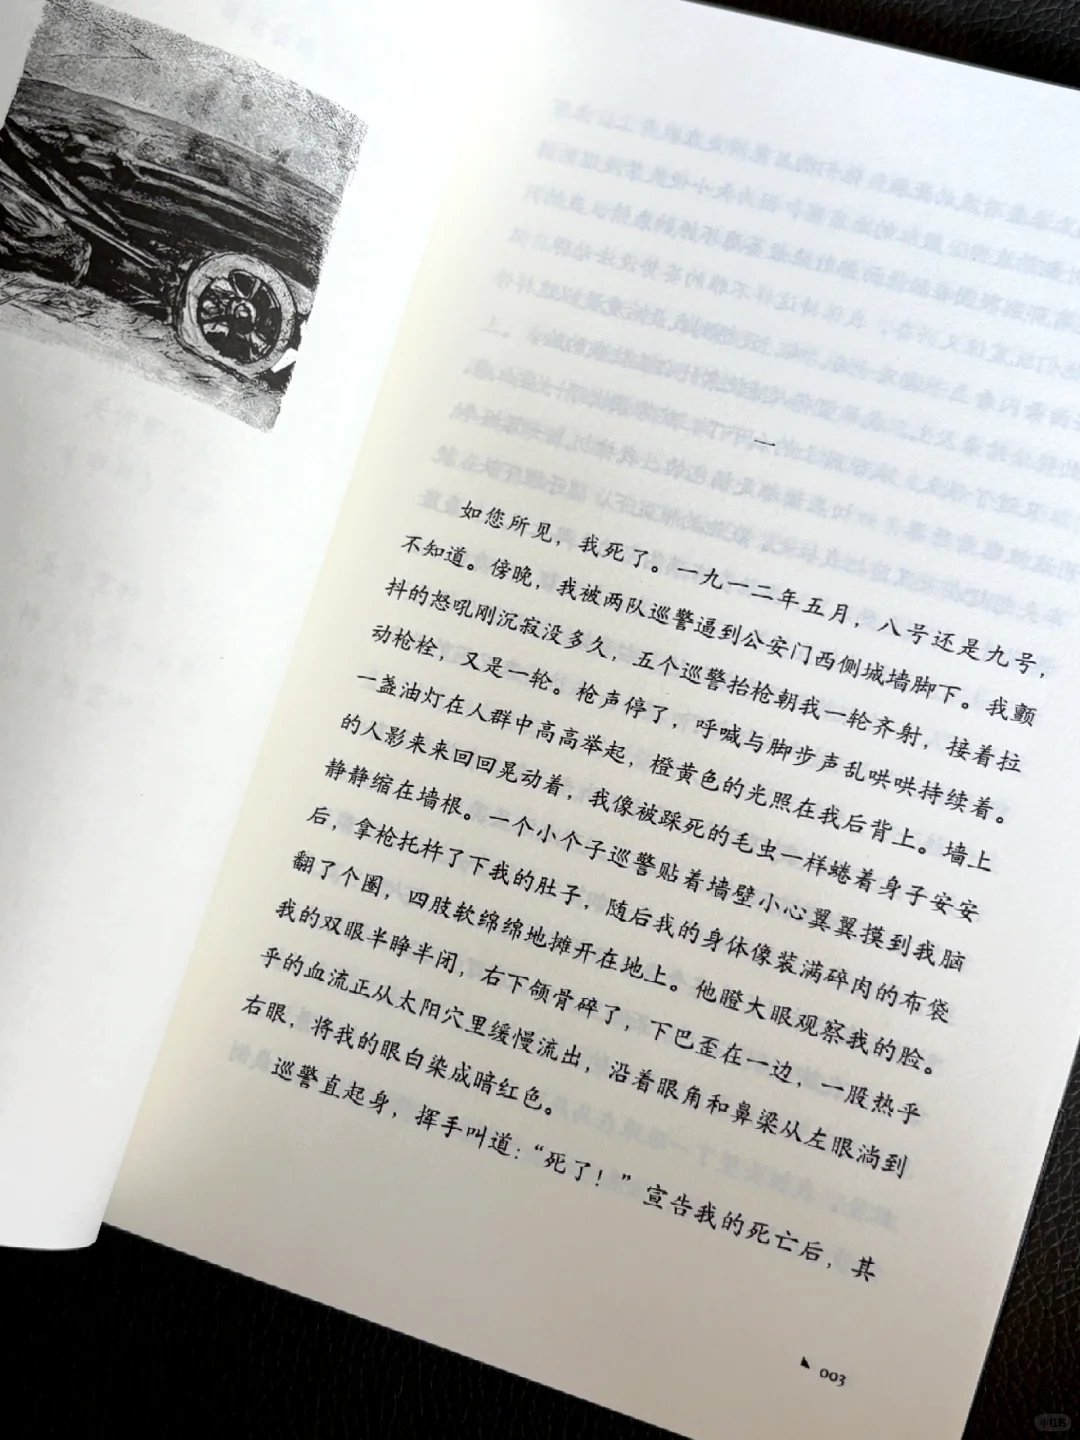 一
如您所见，我死了。一九一二年五月，八号还是九号，
不知道。傍晚，我被两队巡警逼到公安门西侧城墙脚下。我颤
抖的怒吼刚沉寂没多久，五个巡警抬枪朝我一轮齐射，接着拉
动枪栓，又是一轮。枪声停了，呼喊与脚步声乱哄哄持续着。
一盏油灯在人群中高高举起，橙黄色的光照在我后背上。墙上
的人影来来回回晃动着，我像被踩死的毛虫一样蜷着身子安安
静静缩在墙根。一个小个子巡警贴着墙壁小心翼翼摸到我脑
后，拿枪托杵了下我的肚子，随后我的身体像装满碎肉的布袋
翻了个圈，四肢软绵绵地摊开在地上。他瞪大眼观察我的脸。
我的双眼半睁半闭，右下颌骨碎了，下巴歪在一边，一股热乎
乎的血流正从太阳穴里缓慢流出，沿着眼角和鼻梁从左眼淌到
右眼，将我的眼白染成暗红色。
巡警直起身，挥手叫道：“死了！”宣告我的死亡后，其
003
小红书